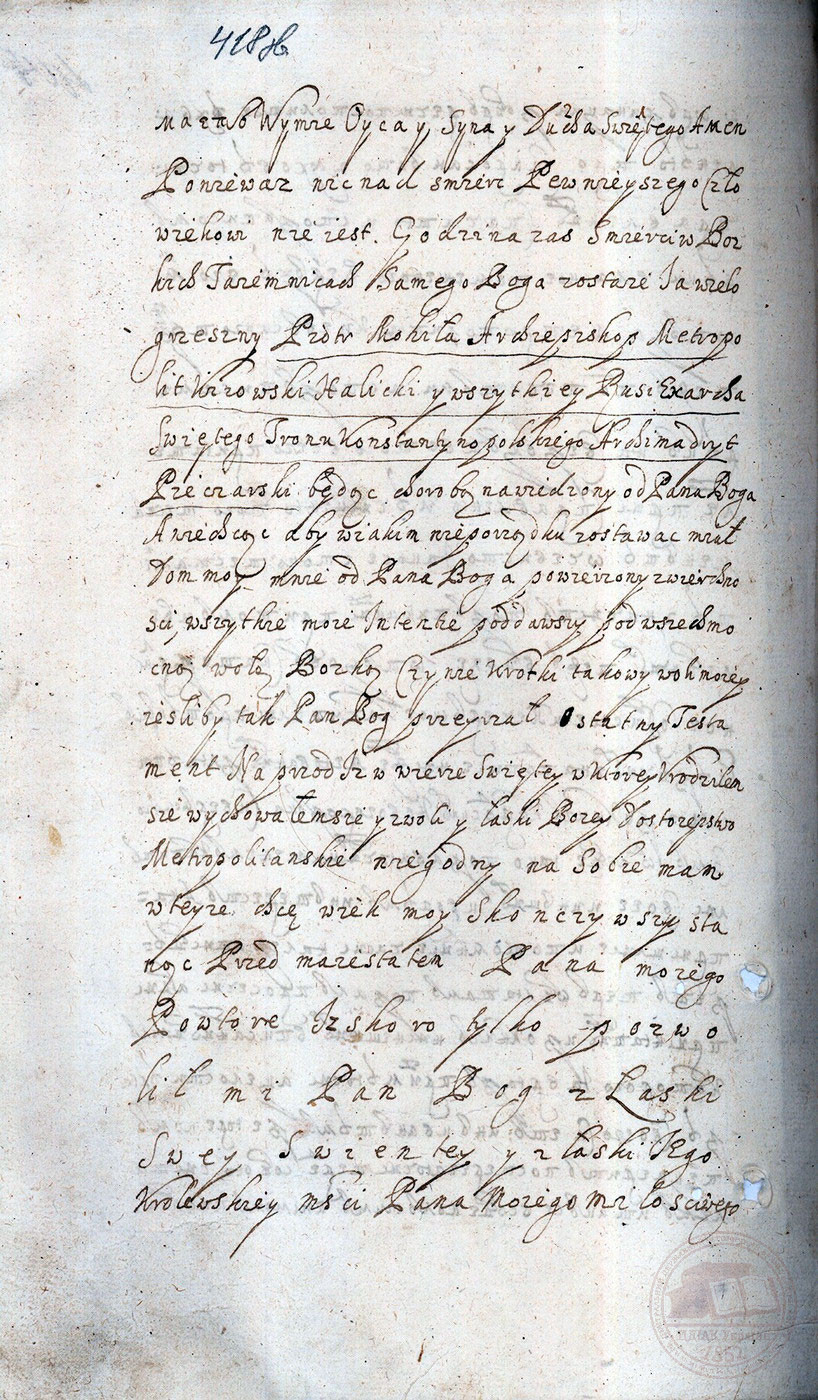 418 зв
маетъ Wymie Oyca y Syna y Ducha Swiętego Amen
Poniewaz nic nad smierc Pewnieyszego Czło
wiekowi nie iest. Godzina zas Smierci w Boz
kich Taiemnicach Samego Boga zostaie Ja wielo
grzeszny Piotr Mohiła Archiepiskop Metropo
lit Kiiowski Halicki y wszytkiey Rusi Exarcha
Swiętego Tronu Konstantynopolskiego Archimadryt
Pieczarski będąc chorobą nawiedziony od Pana Boga
A niechcąc aby wiakim nieporządku zostawac miał
Dom moy mnie od Pana Boga powierzony zwierchno
sci, wszytkie moie Intentie poddawszy pod wszechmo
cną wolą Bozką Czynie Krotki takowy woli moiey
iesliby tak Pan Bog przeyrzał ostatny Testa
ment Naprzod Iz w wierze Swiętey w Ktorey Vrodziłem
sie wychowałemsie y zwoli y łaski Bozey Dostoienstwo
Metropolitanskie niegodny na Sobie mam
w teyze chcę wiek moy Skonczywszy sta
nąc Przed maiestatem Pana moiego
Powtore Iz skoro tylko pozwo
lił mi Pan Bog z Łaski
Swey Swientey y z łaski IEgo
Krolewskiey msci Pana Moiego Miłosciwego